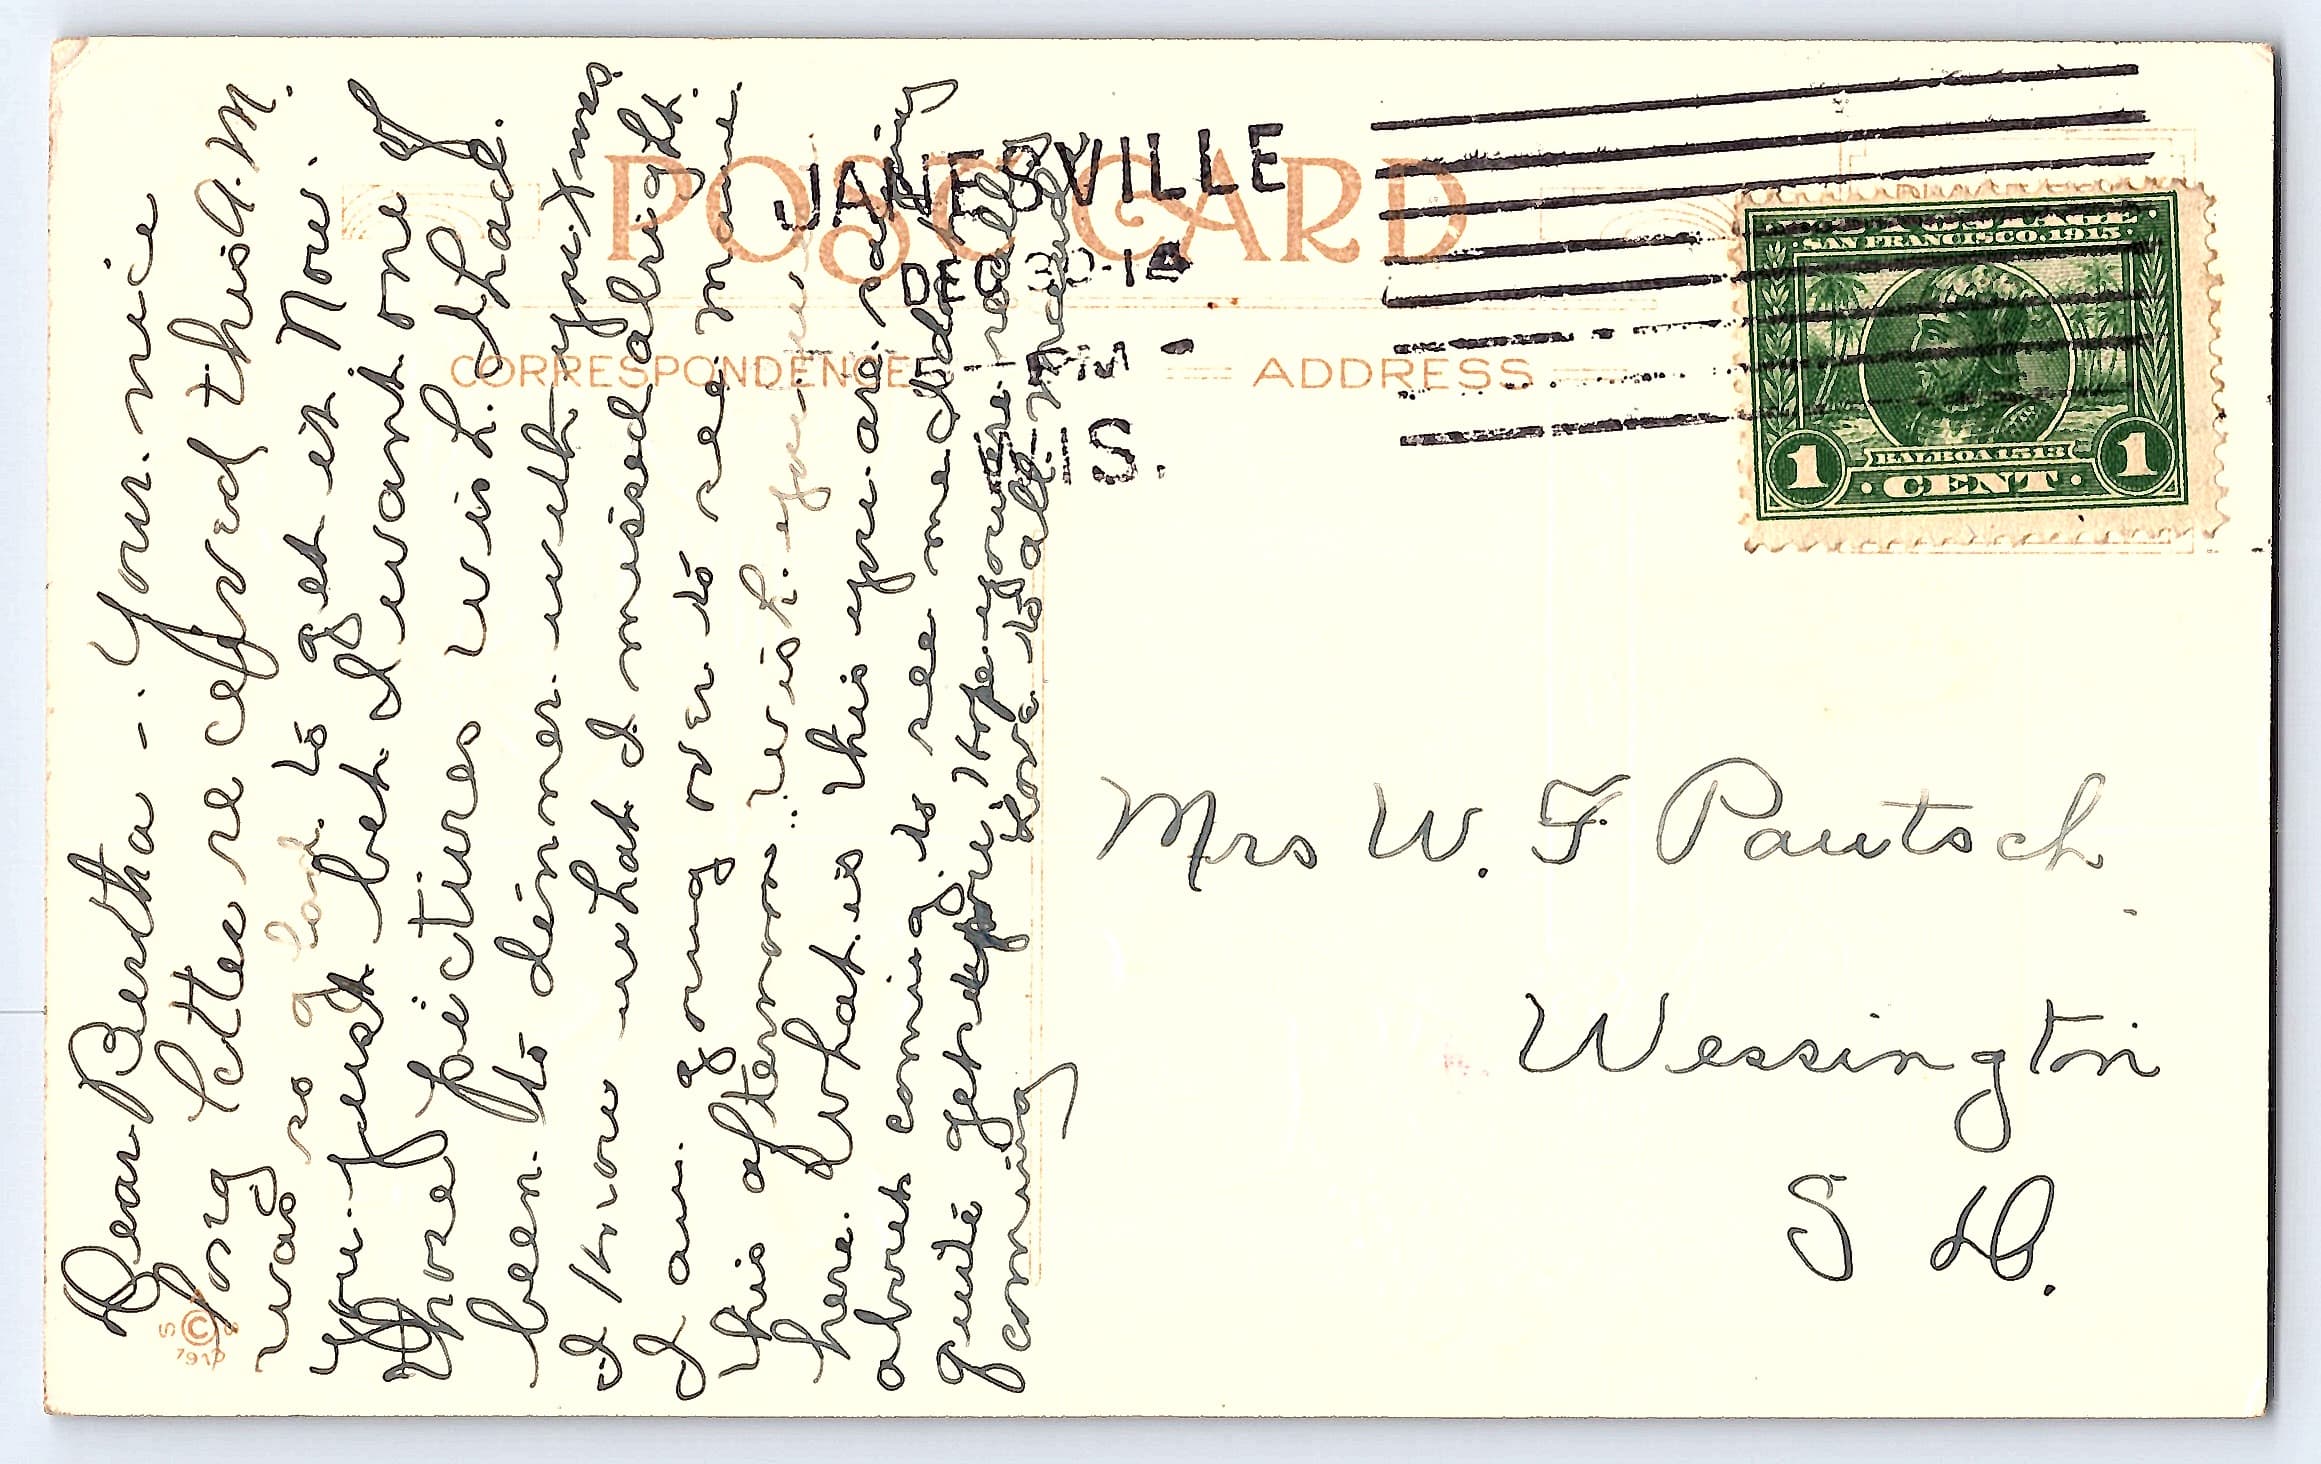 POST CARD
CORRESPONDENCE
ADDRESS
JANESVILLE
DEC 30-14
5-PM
WIS.
SAN FRANCISCO, 1915
BALBOA 1513
1 CENT 1
Dear Bertha -. Your nice
long letter rec'fved this A.M.
was so glad to get it. Now.
You just bet I want one of
those pictures wish. I had
been to dinner with you Xmas
I know what I missed alright.
I am going over to see Marie
this afternoon ... wish you were
here. What is this you are saying
about coming to see me I don't
quite get before, Hope you are really
coming
Love to all.
Mrs W. F. Pautsch
Wessington
S D.
© S S
1913